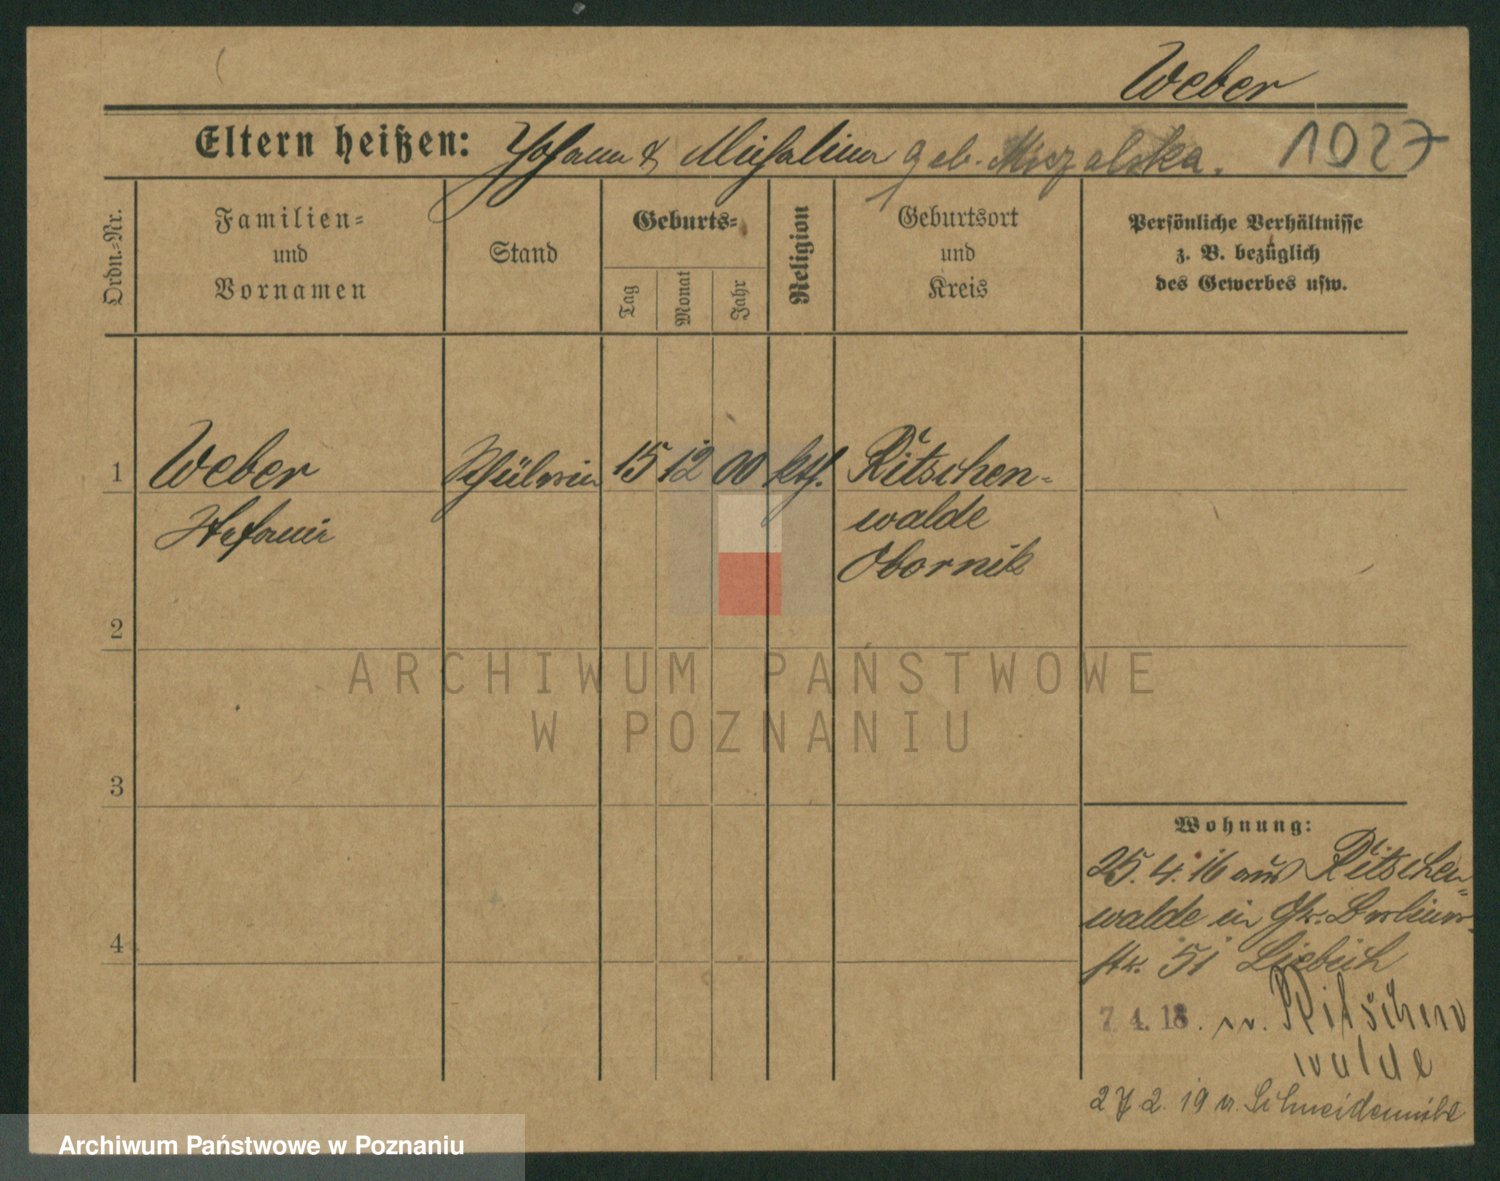 Weber
Eltern heißen: Johann & Michalina geb. 1027
Ordn.-Nr.
Familien-
und
Vornamen
Stand
Geburts-
Tag
Monat
Jahr
Religion
Geburtsort
und
Kreis
Persönliche Verhältnisse
z. B. bezüglich
des Gewerbes usw.
1 Weber Schülerin 15 12 00 kth. Ritschen-
Stefanie walde
Obornik
2
3
4
Wohnung:
25. 4. 16 aus Ritschen-
walde in Gr. Berliner-
str. 51 Liebich
7. 4. 18. n. Ritschen
walde
27. 2. 19 v. Schneidemühl
ARCHIWUM PAŃSTWOWE
W POZNANIU
Archiwum Państwowe w Poznaniu